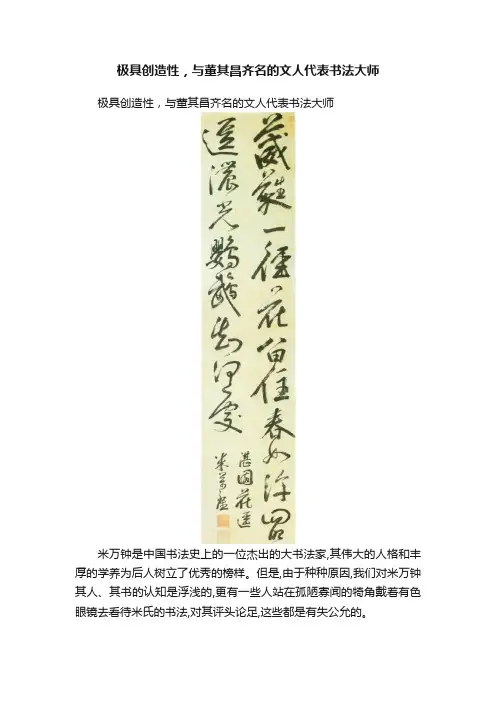 极具创造性，与董其昌齐名的文人代表书法大师
极具创造性，与董其昌齐名的文人代表书法大师
葳蕤一徑花留住春如許
逕濃光鸚鵡知何處
湛園花逕
米萬鍾
米万钟是中国书法史上的一位杰出的大书法家,其伟大的人格和丰
厚的学养为后人树立了优秀的榜样。但是,由于种种原因,我们对米万钟
其人、其书的认知是浮浅的,更有一些人站在孤陋寡闻的犄角戴着有色
眼镜去看待米氏的书法,对其评头论足,这些都是有失公允的。